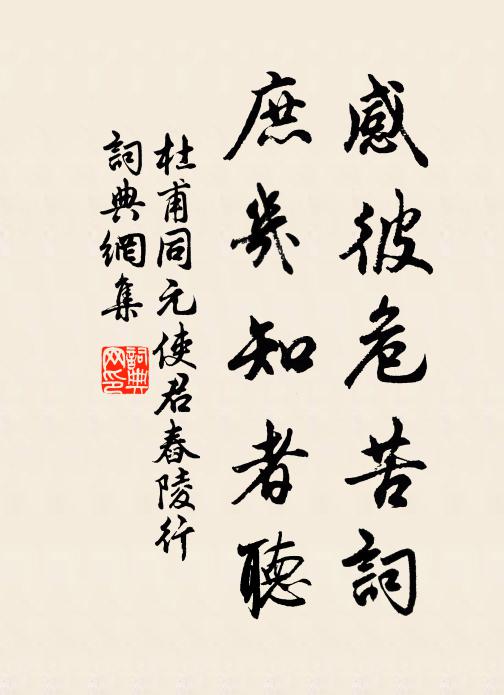 感彼危苦詞
庶幾知者聽
杜甫同元使君舂陵行
詞典網集
詞典网印